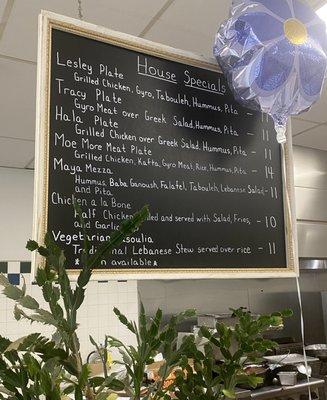 House Specials
Lesley Plate
Grilled Chicken, Gyro, Tabouleh, Hummus, Pita - 11
Tracy Plate
Gyro Meat over Greek Salad, Hummus, Pita - 11
Hala Plate
Grilled Chicken over Greek Salad, Hummus, Pita - 11
Moe More Meat Plate
Grilled Chicken, Kafta, Gyro Meat, Rice, Hummus, Pita - 14
Maya Mezza
Hummus, Baba Ganoush, Falafel, Tabouleh, Lebanese Salad - 11
and Pita
Chicken a la Bone
Half Chicken and served with Salad, Fries, - 10
and Garlic
Vegetarian
Traditional Lebanese Stew served over rice - 11
available*